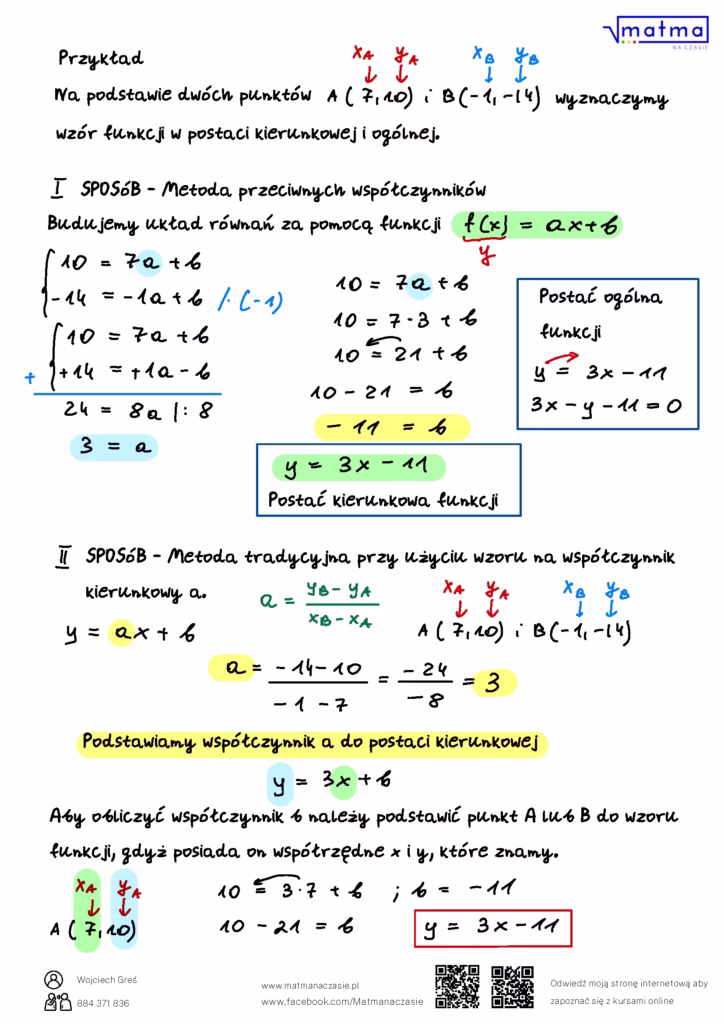 √matma
NA CZASIE
Przykład
xA yA xB yB
Na podstawie dwóch punktów A(7,10) i B(-1,-14) wyznaczymy
wzór funkcji w postaci kierunkowej i ogólnej.
I SPOSÓB - Metoda przeciwnych współczynników
Budujemy układ równań za pomocą funkcji f(x) = ax+b
y
10 = 7a + b
-14 = -1a + b /·(-1)
10 = 7a + b
+ +14 = +1a - b
24 = 8a |: 8
3 = a
10 = 7a + b
10 = 7·3 + b
10 = 21 + b
10 - 21 = b
- 11 = b
y = 3x - 11
Postać kierunkowa funkcji
Postać ogólna
funkcji
y = 3x - 11
3x - y - 11 = 0
II SPOSÓB - Metoda tradycyjna przy użyciu wzoru na współczynnik
kierunkowy a. a = yB - yA / xB - xA
xA yA xB yB
y = ax + b A(7,10) i B(-1,-14)
a = -14-10 / -1-7 = -24 / -8 = 3
Podstawiamy współczynnik a do postaci kierunkowej
y = 3x + b
Aby obliczyć współczynnik b należy podstawić punkt A lub B do wzoru
funkcji, gdyż posiada on współrzędne x i y, które znamy.
xA yA
A(7,10)
10 = 3·7 + b ; b = -11
10 - 21 = b
y = 3x - 11
Wojciech Greś
884 371 836
www.matmanaczasie.pl
www.facebook.com/Matmanaczasie
Odwiedź moją stronę internetową aby
zapoznać się z kursami online